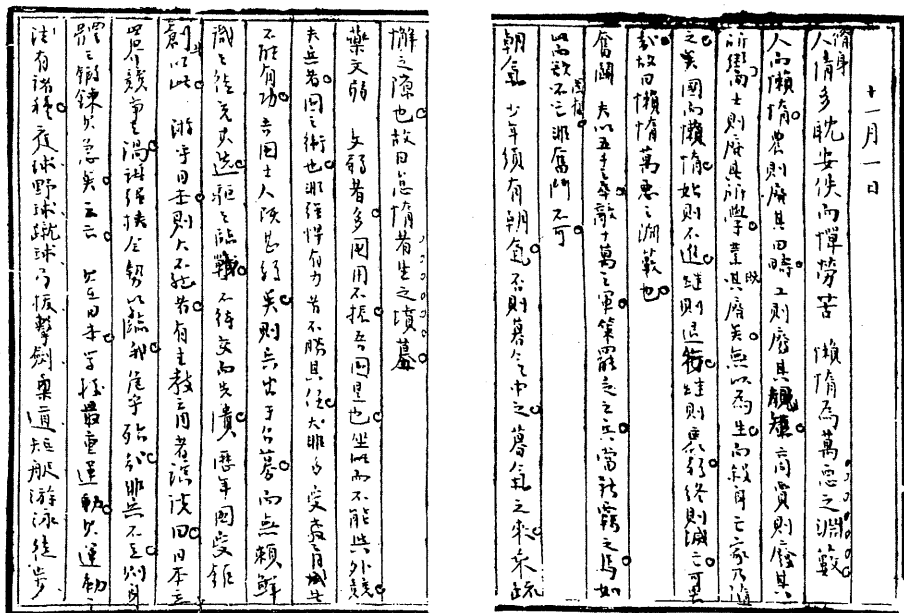 十一月一日
修身
人情多耽安佚而憚勞苦 懶惰為萬惡之淵藪
人而懶惰農則廢其田疇工則廢其規矩商賈則廢其
所鬻士則廢其所學業既廢矣無以為生而殺身亡家乃隨
之矣國而懶惰始則不進繼則退行繼則衰弱終則滅亡可畏
哉故曰懶惰萬惡之淵藪也
奮鬥 夫以五千之卒敵十萬之軍策罷乏之兵當新羈之馬如
此而欲圖存不亡非奮鬥不可
朝氣 少年須有朝氣否則暮气中之暮氣之來乘疏
懈之隙也故曰怠惰者生之墳墓
藥文弱 文弱者多國用不振吾國是也坐此而不能與外競
夫兵者國之衛也非强悍有力者不勝其任 非身受教育
不能有功吾國士人既甚弱矣則兵出于召募而無賴鮮
識之徒充其選驅之臨戰不待交而先潰歷年國受鉅
創以此 游乎日本則大不然者有主教育者演說曰日本立
世界競爭之渦 强挾全勢以臨我危乎殆哉非兵不立則身
體之鍛鍊又急矣云云 又至日本學校最重運動其運動之
法有諸種庭球野球蹴球弓拔擊劍柔道短艇游泳徒步